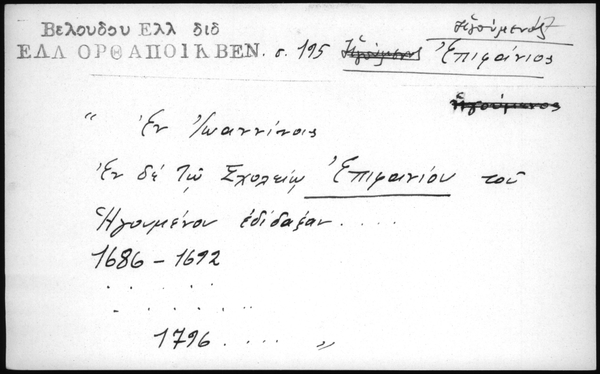 Βελουδου Ελλ διδ
ΕΛΛ ΟΡΘΑΠΟΙΚΒΕΝ. σ. 195 Ἐπιφάνιος
Ἡγούμενος
Ἡγούμενος
„ Ἐν Ἰωαννίνοις
Ἐν δέ τῷ Σχολείῳ Ἐπιφανίου τοῦ
Ἡγουμένου ἐδίδαξαν . . . .
1686 – 1692
. . . . .
. . . . . .
1796 . . . . „